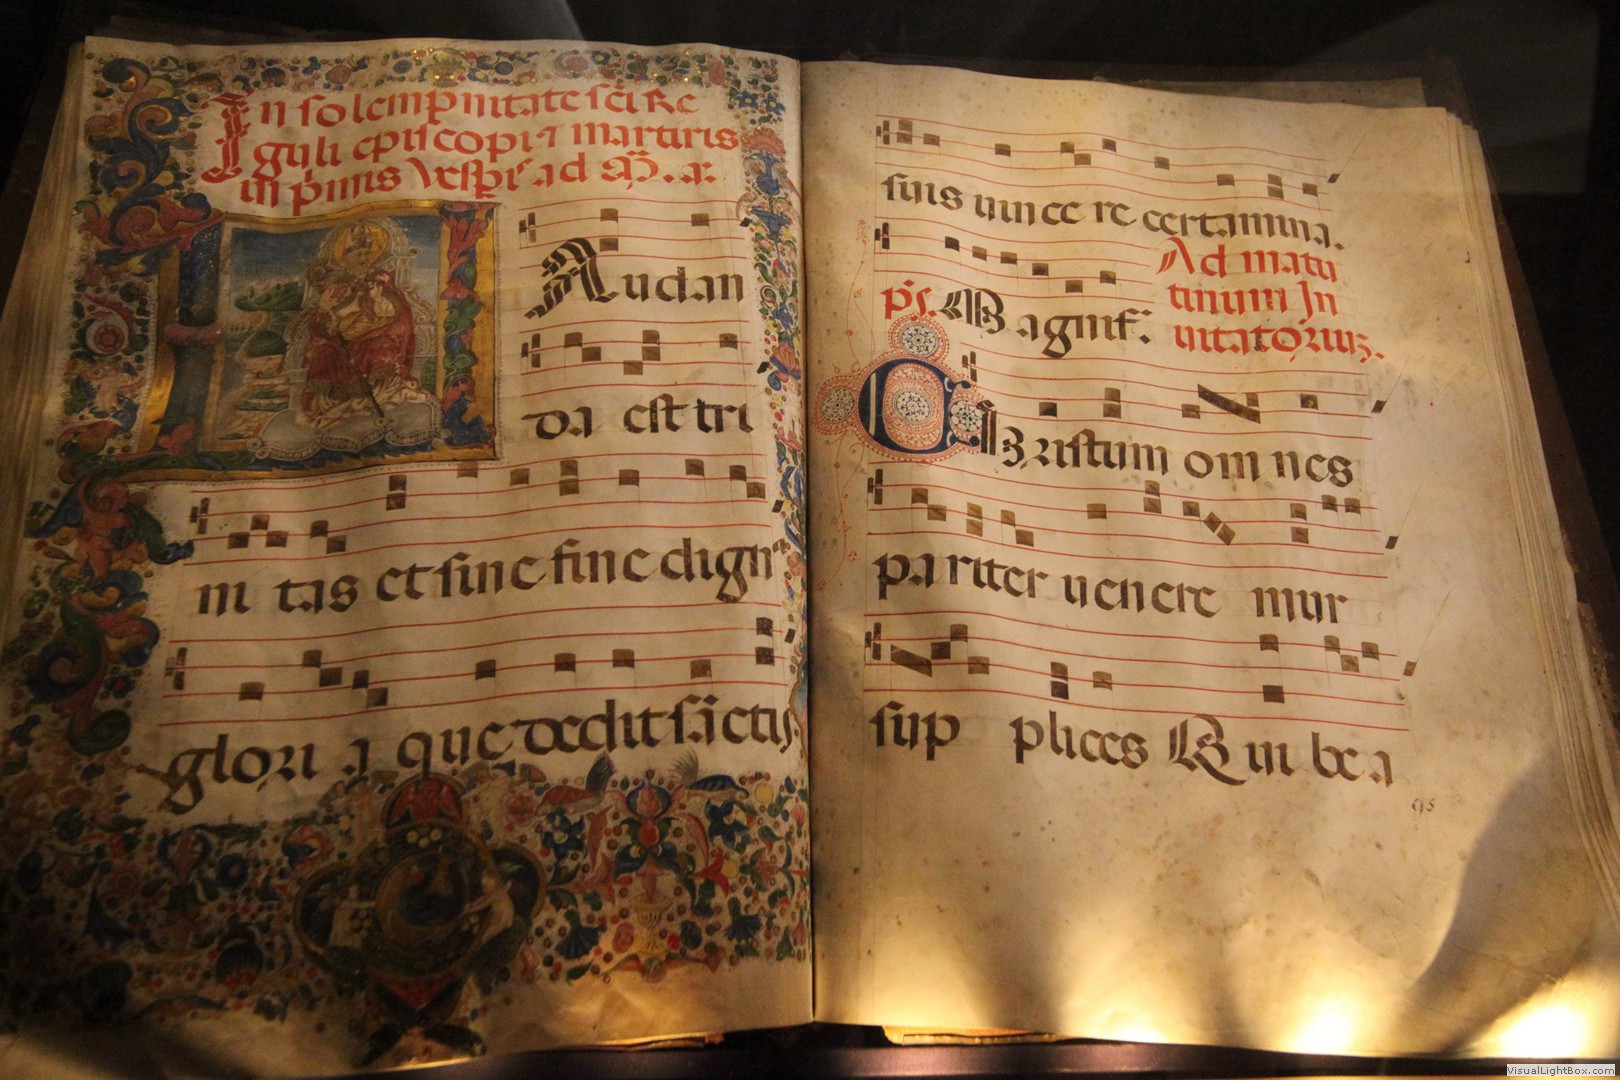 In solempnitate sc̄i Re
guli episcopi ⁊ martiris
in p̄imis vesp̄ ad
Laudan
da est tri
ni tas et sine fine dign
glori a que dedit sāctis
suis uincere certamina.
ps. Magnif. Ad matu
tinum In
uitatoriuz.
Christum om nes
pa riter uenere mur
sup plices Qui be a
95
VisualLightBox.com